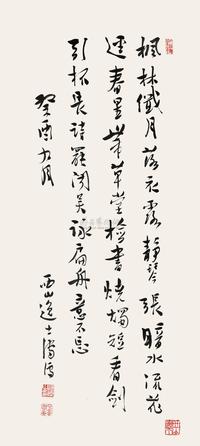 楓林纖月落衣露靜琴張暗水流花
逕春星帶草堂檢書燒燭短看劍
引杯長詩罷聞吳詠扁舟意不忘
癸酉九月
西山逸士溥儒